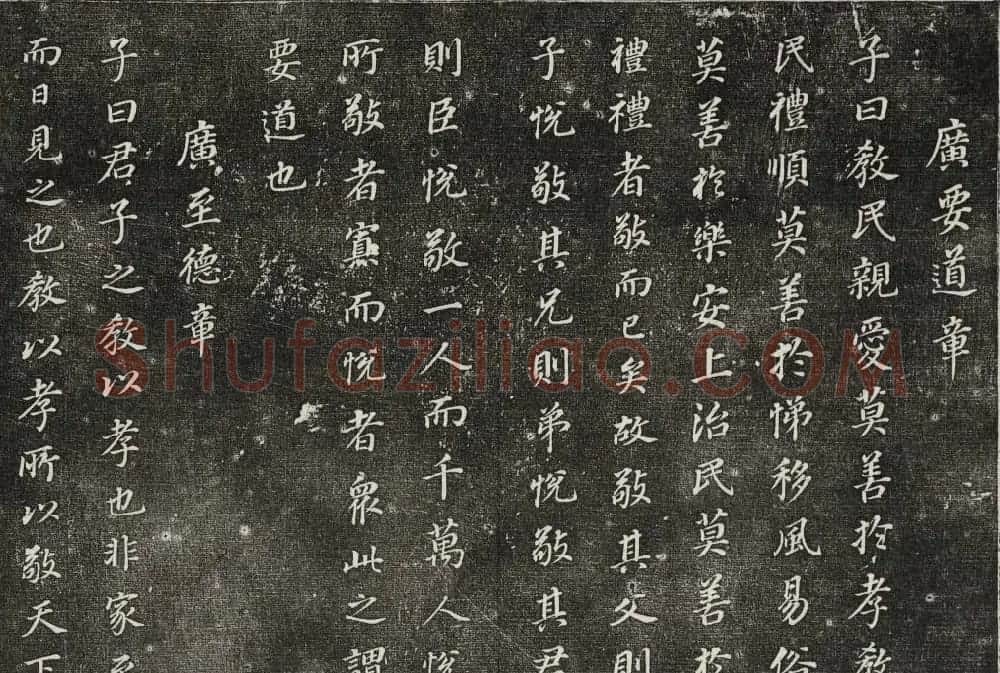 廣要道章
子曰教民親愛莫善於孝教
民禮順莫善於悌移風易俗
莫善於樂安上治民莫善於
禮禮者敬而已矣故敬其父則
子悅敬其兄則弟悅敬其君
則臣悅敬一人而千萬人悅
所敬者寡而悅者衆此之謂
要道也
廣至德章
子曰君子之教以孝也非家至
而日見之也教以孝所以敬天下
Shufaziliao.COM